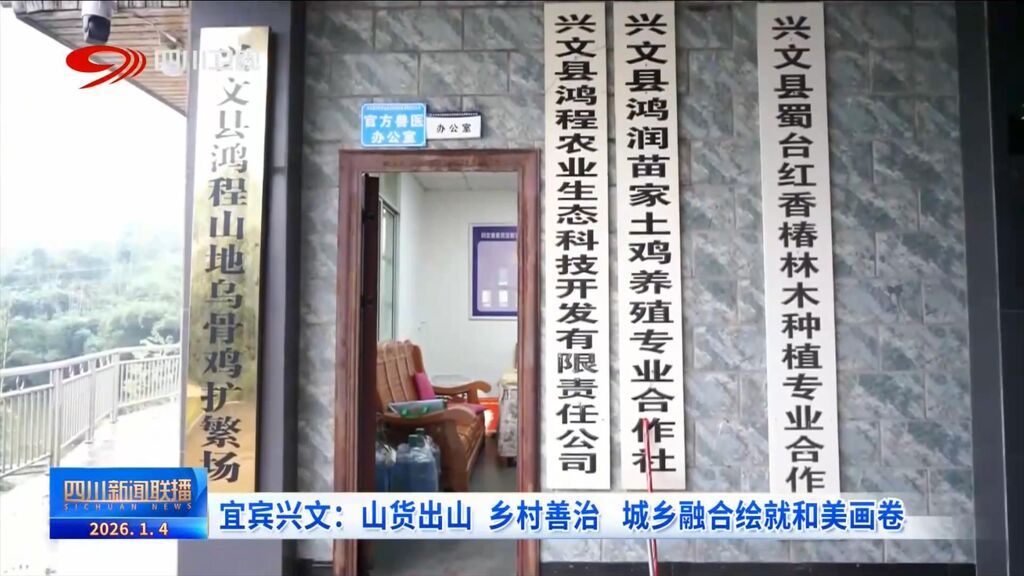 四川卫视
兴文县鸿程山地乌骨鸡扩繁场
官方兽医
办公室
办公室
兴文县鸿程农业生态科技开发有限责任公司
兴文县鸿润苗家土鸡养殖专业合作社
兴文县蜀台红香椿林木种植专业合作
四川新闻联播
SICHUAN NEWS
2026.1.4
宜宾兴文：山货出山 乡村善治 城乡融合绘就和美画卷